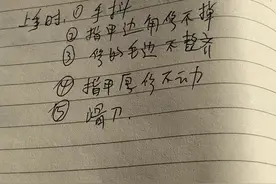 上手时,① 手抖
② 指甲边角修不掉
③ 修的毛边不整齐
④ 指甲厚修不动
⑤ 滑刀.